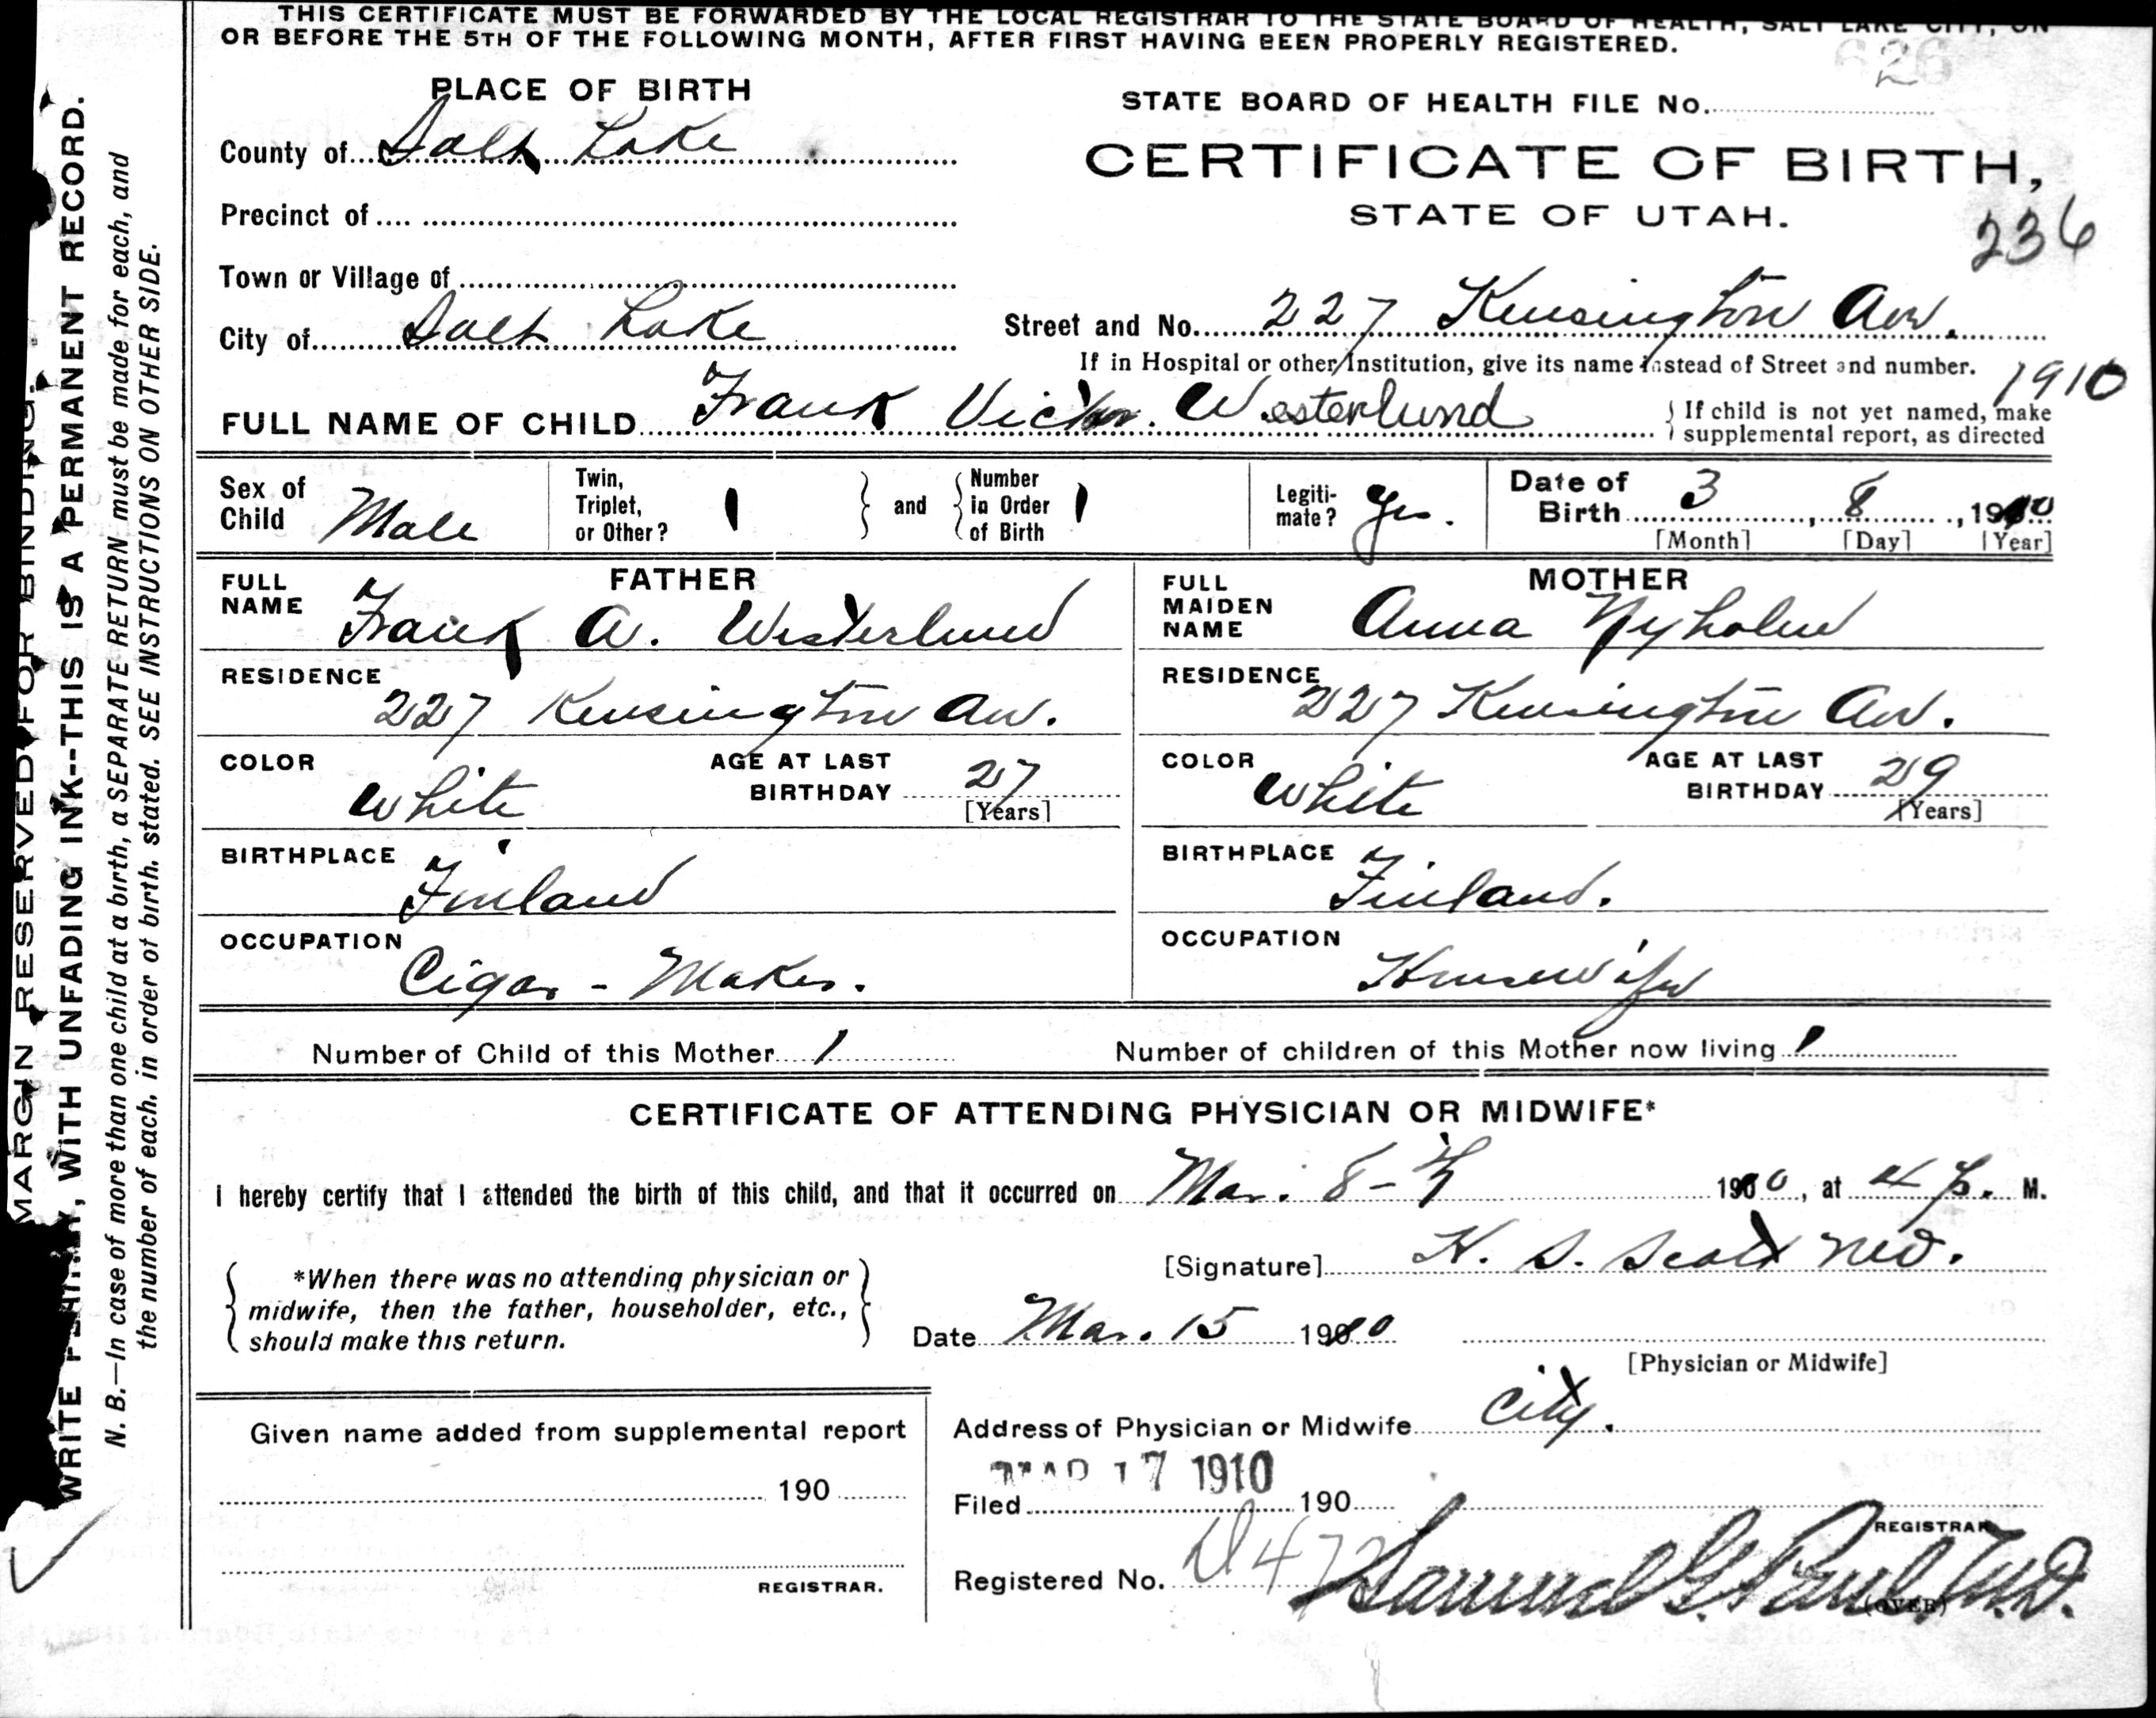 THIS CERTIFICATE MUST BE FORWARDED BY THE LOCAL REGISTRAR TO THE STATE BOARD OF HEALTH, SALT LAKE CITY, ON
OR BEFORE THE 5TH OF THE FOLLOWING MONTH, AFTER FIRST HAVING BEEN PROPERLY REGISTERED.
626
PLACE OF BIRTH
STATE BOARD OF HEALTH FILE No.
County of Salt Lake
CERTIFICATE OF BIRTH,
Precinct of
STATE OF UTAH.
236
Town or Village of
City of Salt Lake
Street and No. 227 Kensington Ave.
If in Hospital or other Institution, give its name instead of Street and number.
1910
FULL NAME OF CHILD Frank Victor Westerlund
If child is not yet named, make
supplemental report, as directed
Sex of Child Male
Twin, Triplet, or Other? 1 and Number in Order of Birth 1
Legiti-mate? Yes.
Date of Birth 3, 8, 1910
[Month] [Day] [Year]
FATHER
FULL NAME Frank A. Westerlund
MOTHER
FULL MAIDEN NAME Anna Nyholm
RESIDENCE 227 Kensington Ave.
RESIDENCE 227 Kensington Ave.
COLOR White
AGE AT LAST BIRTHDAY 27
[Years]
COLOR White
AGE AT LAST BIRTHDAY 29
[Years]
BIRTHPLACE Finland
BIRTHPLACE Finland.
OCCUPATION Cigar - Maker.
OCCUPATION Housewife
Number of Child of this Mother 1
Number of children of this Mother now living 1
CERTIFICATE OF ATTENDING PHYSICIAN OR MIDWIFE*
I hereby certify that I attended the birth of this child, and that it occurred on Mar. 8- 1910, at 4 P. M.
[Signature] H. S. Scott MD.
*When there was no attending physician or
midwife, then the father, householder, etc.,
should make this return.
Date Mar. 15 1910
[Physician or Midwife]
Given name added from supplemental report
Address of Physician or Midwife City.
190
MAR 17 1910
Filed 190
REGISTRAR
REGISTRAR.
Registered No. D472
Samuel G. Paul, M.D.
(OVER)
MARGIN RESERVED FOR BINDING.
WRITE PLAINLY, WITH UNFADING INK--THIS IS A PERMANENT RECORD.
N. B.—In case of more than one child at a birth, a SEPARATE RETURN must be made for each, and
the number of each, in order of birth, stated. SEE INSTRUCTIONS ON OTHER SIDE.